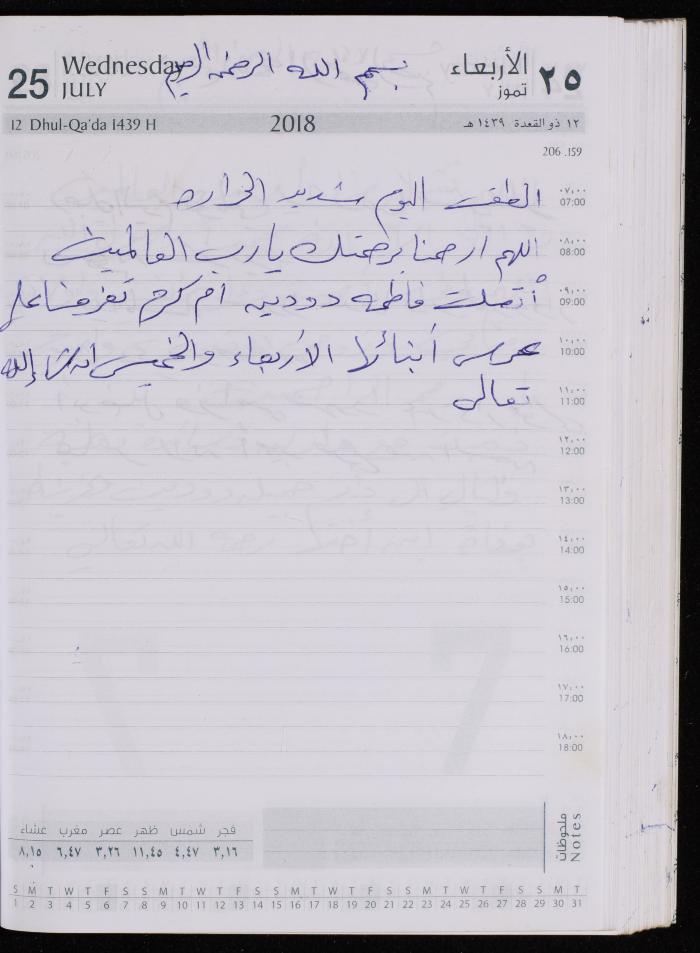 25 Wednesday JULY بسم الله الرحمن الرحيم الأربعاء تموز ٢٥
12 Dhul-Qa'da 1439 H 2018 ١٢ ذو القعدة ١٤٣٩ هـ
206 .159
الطقس اليوم شديد الحراره ٠٧,٠٠ 07:00
اللهم ارحمنا برحمتك يا رب العالمين ٠٨,٠٠ 08:00
أتصلت فاطمه دودين أم كرم تعزمنا على ٠٩,٠٠ 09:00
عرس أبنائها الأربعاء والخميس إن شاء الله ١٠,٠٠ 10:00
تعالى ١١,٠٠ 11:00
١٢,٠٠ 12:00
١٣,٠٠ 13:00
١٤,٠٠ 14:00
١٥,٠٠ 15:00
١٦,٠٠ 16:00
١٧,٠٠ 17:00
١٨,٠٠ 18:00
ملحوظات Notes
فجر شمس ظهر عصر مغرب عشاء
٣,١٦ ٤,٤٧ ١١,٤٥ ٣,٢٦ ٦,٤٧ ٨,١٥
S M T W T F S S M T W T F S S M T W T F S S M T W T F S S M T
1 2 3 4 5 6 7 8 9 10 11 12 13 14 15 16 17 18 19 20 21 22 23 24 25 26 27 28 29 30 31